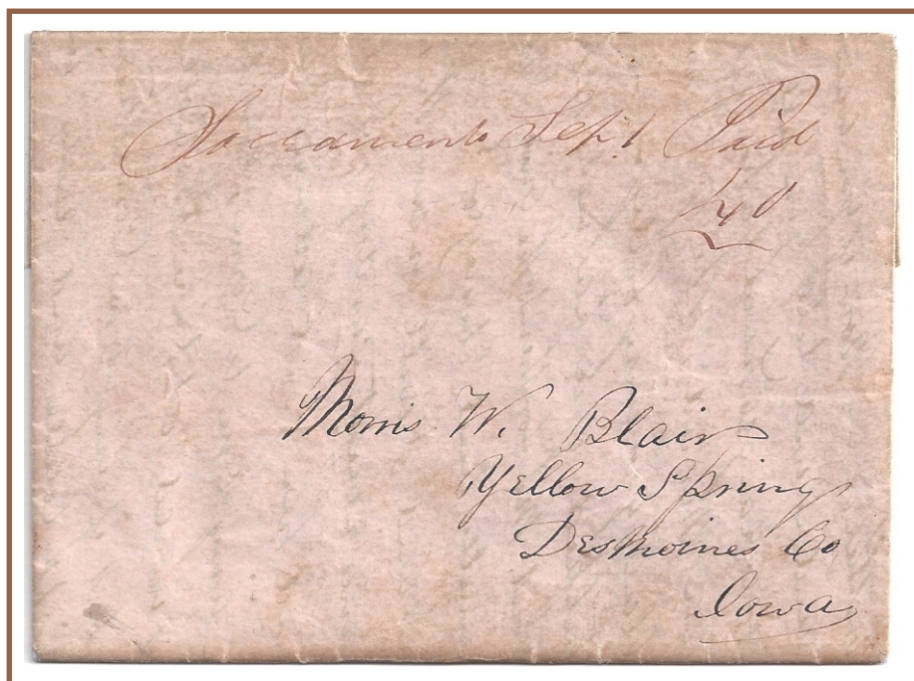 Sacramento Sep 1 Paid
40
Morris W. Blair
Yellow Spring
DesMoines Co
Iowa